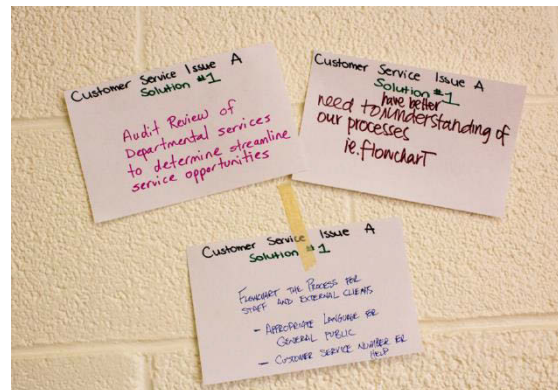 Customer Service Issue A
Solution #1
Audit Review of
Departmental services
to determine streamline
service opportunities
Customer Service Issue A
Solution #1
have better
need to understanding of
our processes
ie. flowchart
Customer Service Issue A
Solution #1
FLOWCHART THE PROCESS FOR
STAFF AND EXTERNAL CLIENTS
- APPROPRIATE LANGUAGE FOR
GENERAL PUBLIC
- CUSTOMER SERVICE NUMBER FOR
HELP